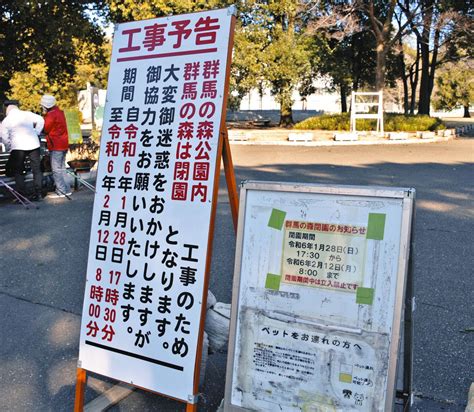 工事予告
群馬の森公園内 工事のため
群馬の森は閉園 となります。
大変御迷惑をおかけしますが
御協力をお願いいたします。
期間 自令和6年1月28日 17時30分
至令和6年2月12日 8時00分
群馬の森閉園のお知らせ
閉園期間
令和6年1月28日(日)
17:30 から
令和6年2月12日(月)
8:00 まで
閉園期間中は立入禁止です
ペットをお連れの方へ